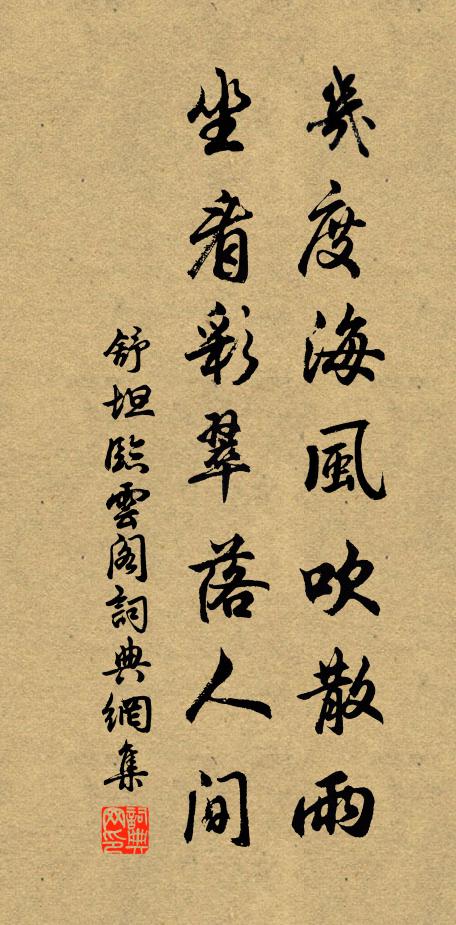 幾度海風吹散雨
坐看彩翠落人间
舒坦臨雲阁詞典網集
詞典網印